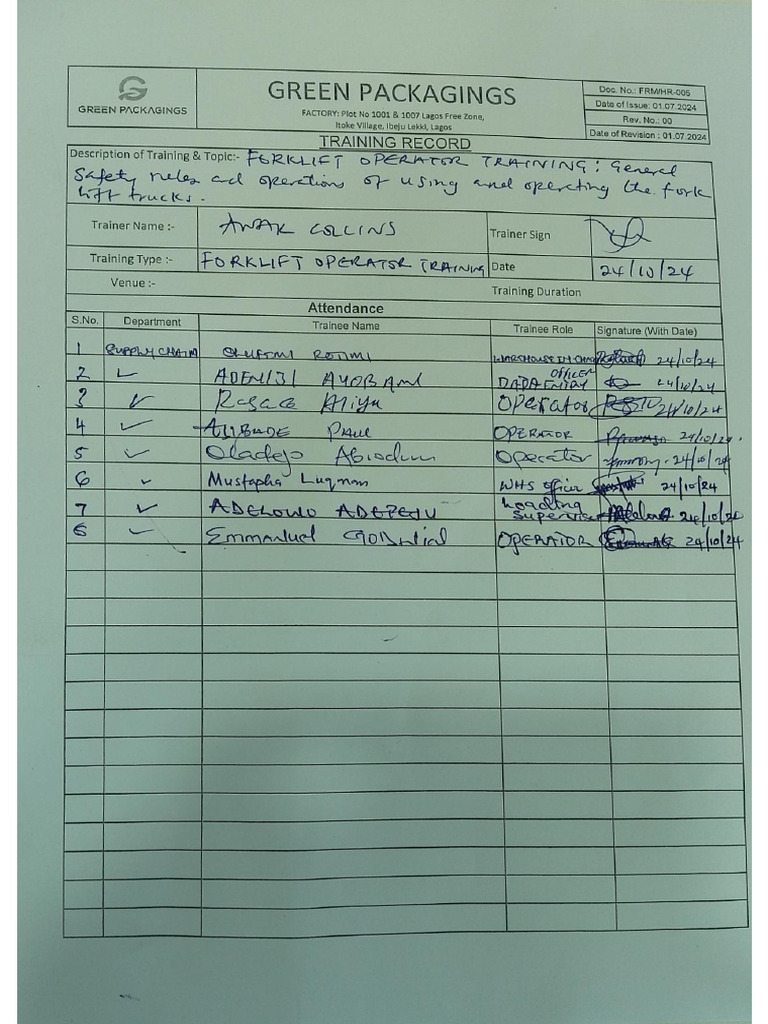 GREEN PACKAGINGS
GREEN PACKAGINGS
FACTORY: Plot No 1001 & 1007 Lagos Free Zone,
Itoke Village, Ibeju Lekki, Lagos
Doc. No.: FRM/HR-005
Date of Issue: 01.07.2024
Rev. No.: 00
Date of Revision : 01.07.2024
TRAINING RECORD
Description of Training & Topic:- FORKLIFT OPERATOR TRAINING: General
Safety rules ad operations of using and operating the fork
lift trucks.
Trainer Name :- AWAK COLLINS Trainer Sign
Training Type :- FORKLIFT OPERATOR TRAINING Date 24/10/24
Venue :- Training Duration
Attendance
S.No. Department Trainee Name Trainee Role Signature (With Date)
1 SUPPLY CHAIN OLUFEMI ROTIMI WAREHOUSE IN 24/10/24
2 ✓ ADENIJI AYOBAMI DADA ENTRY OFFICER 24/10/24
3 ✓ Aliyu Operator 24/10/24
4 ✓ AJIBADE PAUL OPERATOR 24/10/24.
5 ✓ Oladejo Abiodun Operator 24/10/24
6 ✓ Mustapha Luqman WHS officer 24/10/24
7 ✓ ADELOWO ADEPEJU Loading Supervisor 24/10/24
8 ✓ Emmanuel OPERATOR 24/10/24